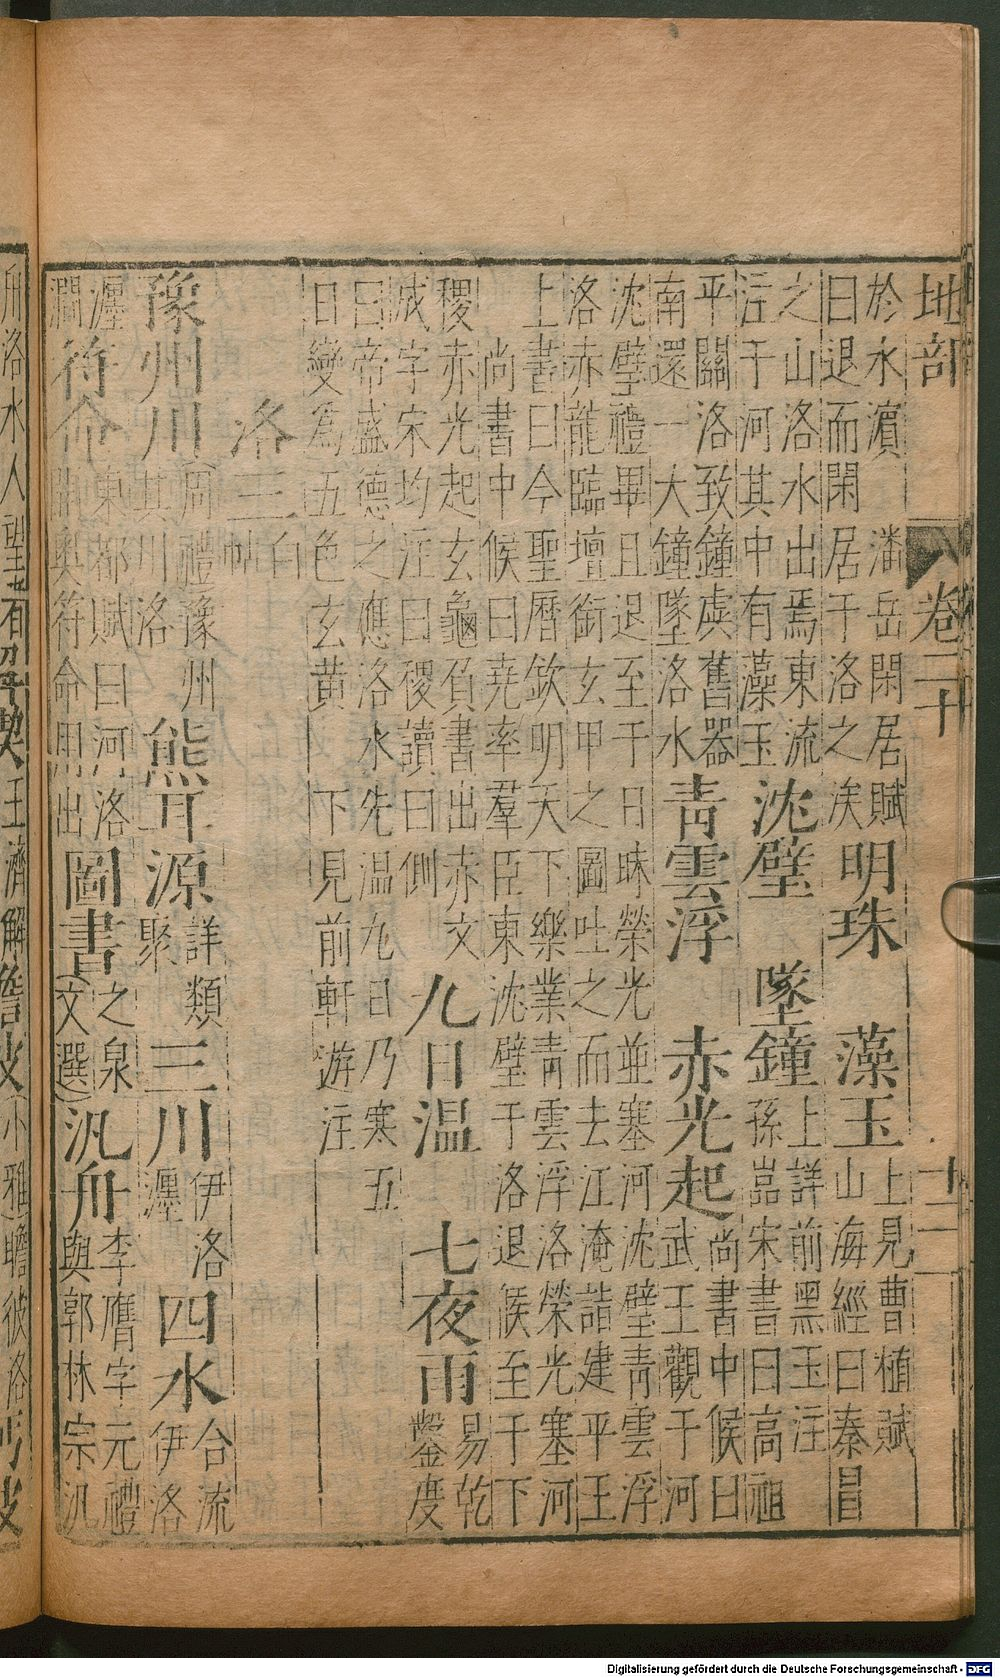 地部 卷二十 十二
於水濱 潘岳閑居賦
曰退而閑居于洛之涘
明珠 藻玉
上見曹植賦
山海經曰秦冒
之山洛水出焉東流
注于河其中有藻玉
沈璧 墜鐘
上詳前黑玉注
孫嵓宋書曰高祖
平關洛致鐘虡舊器
南還一大鐘墜洛水
青雲浮 赤光起
尚書中候曰
武王觀于河
沈璧禮畢且退至于日昧榮光並塞河沈璧青雲浮
洛赤龍臨壇銜玄甲之圖吐之而去江淹詣建平王
上書曰今聖曆欽明天下樂業青雲浮洛榮光塞河
尚書中候曰堯率羣臣東沈璧于洛退候至于下
稷赤光起玄龜負書出赤文
成字宋均注曰稷讀曰側
九日温 七夜雨
易乾
鑿度
曰帝盛德之應洛水先温九日乃寒五
日變爲五色玄黄 下見前軒遊注
洛三
白
帖
豫州川
周禮豫州
其川洛
熊耳源
詳類
聚
三川
伊洛
瀍
四水
合流
伊洛
瀍
澗
符命
東都賦曰河洛
開奥符命用出
圖書
之泉
文選
汎舟
李膺字元禮
與郭林宗汎
舟洛水人望
王濟解
小雅瞻彼洛
Digitalisierung gefördert durch die Deutsche Forschungsgemeinschaft - DFG